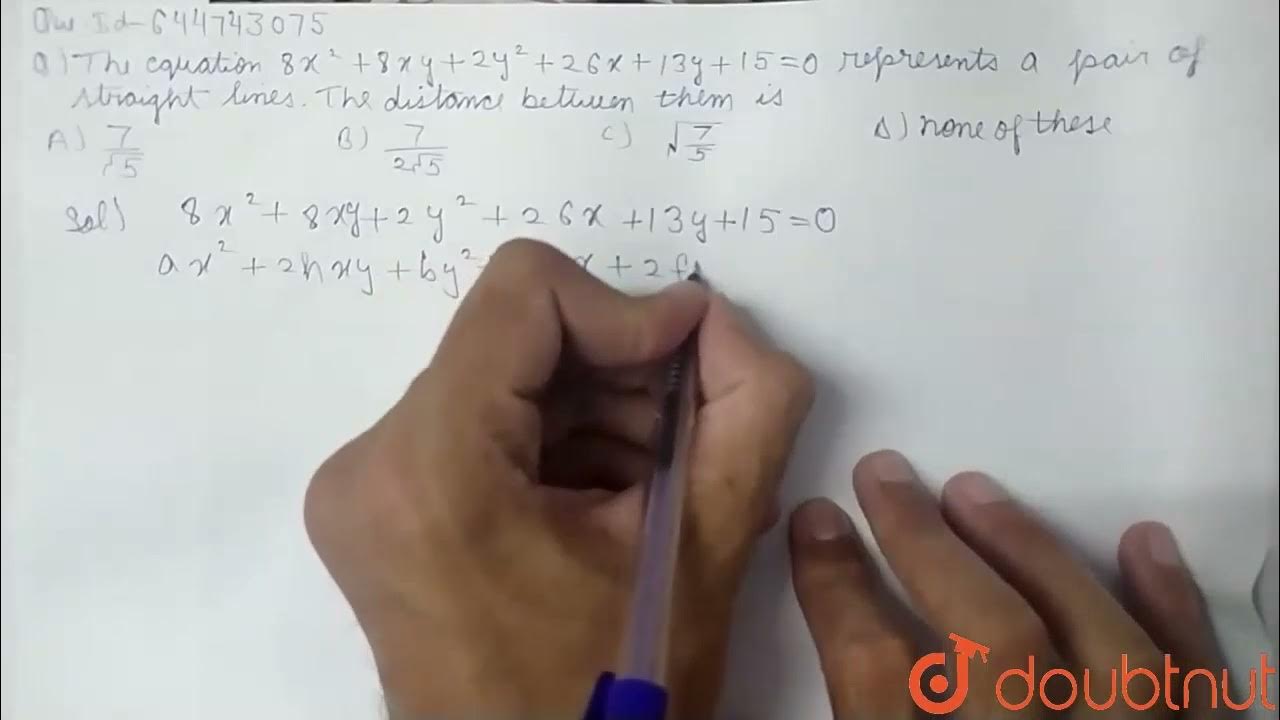 Que Id-644743075
Q) The equation 8x² + 8xy + 2y² + 26x + 13y + 15 = 0 represents a pair of
straight lines. The distance between them is
A) 7/√5 B) 7/2√5 C) √7/5 D) none of these
Sol) 8x² + 8xy + 2y² + 26x + 13y + 15 = 0
ax² + 2hxy + by² x + 2f
doubtnut